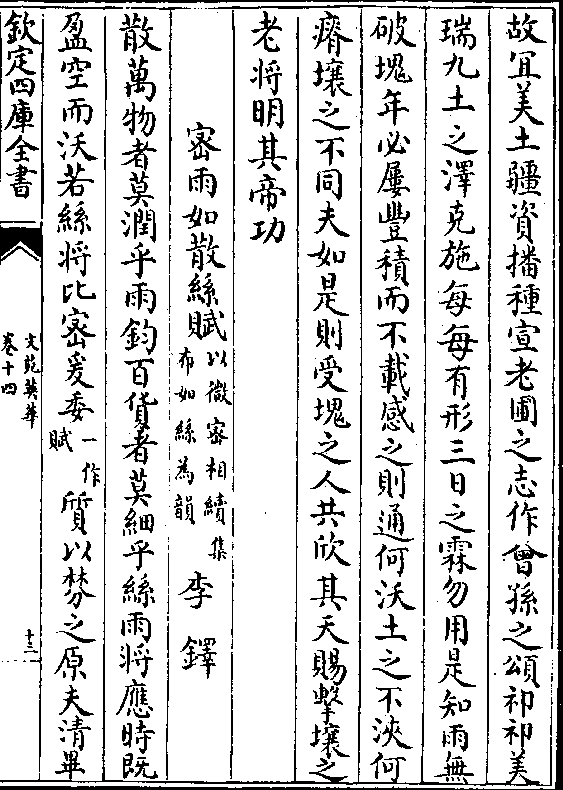 故冝美土疆資播種宣老圃之志作曾孫之頌祁祁美
瑞九土之澤克施每每有形三日之霖勿用是知雨無
破塊年必屢豐積而不載感之則通何沃土之不浹何
瘠壤之不同夫如是則受塊之人共欣其天賜擊壤之
老將明其帝功
密雨如散絲賦以微密相續集布如絲為韻 李鐸
散萬物者莫潤乎雨鈞百貨者莫細乎絲雨將應時既
盈空而沃若絲將比密爰委一作賦質以棼之原夫清畢
欽定四庫全書
文苑英華
卷十四
十三